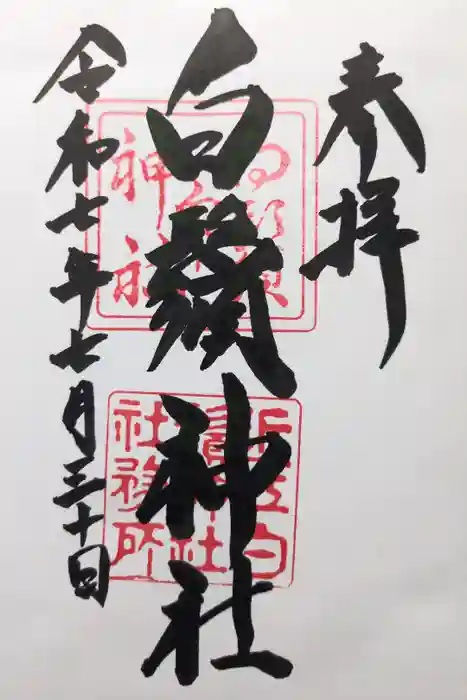 奉拝
白鬚神社
令和七年七月三十日
神社
近江白
鬚神社
社務所